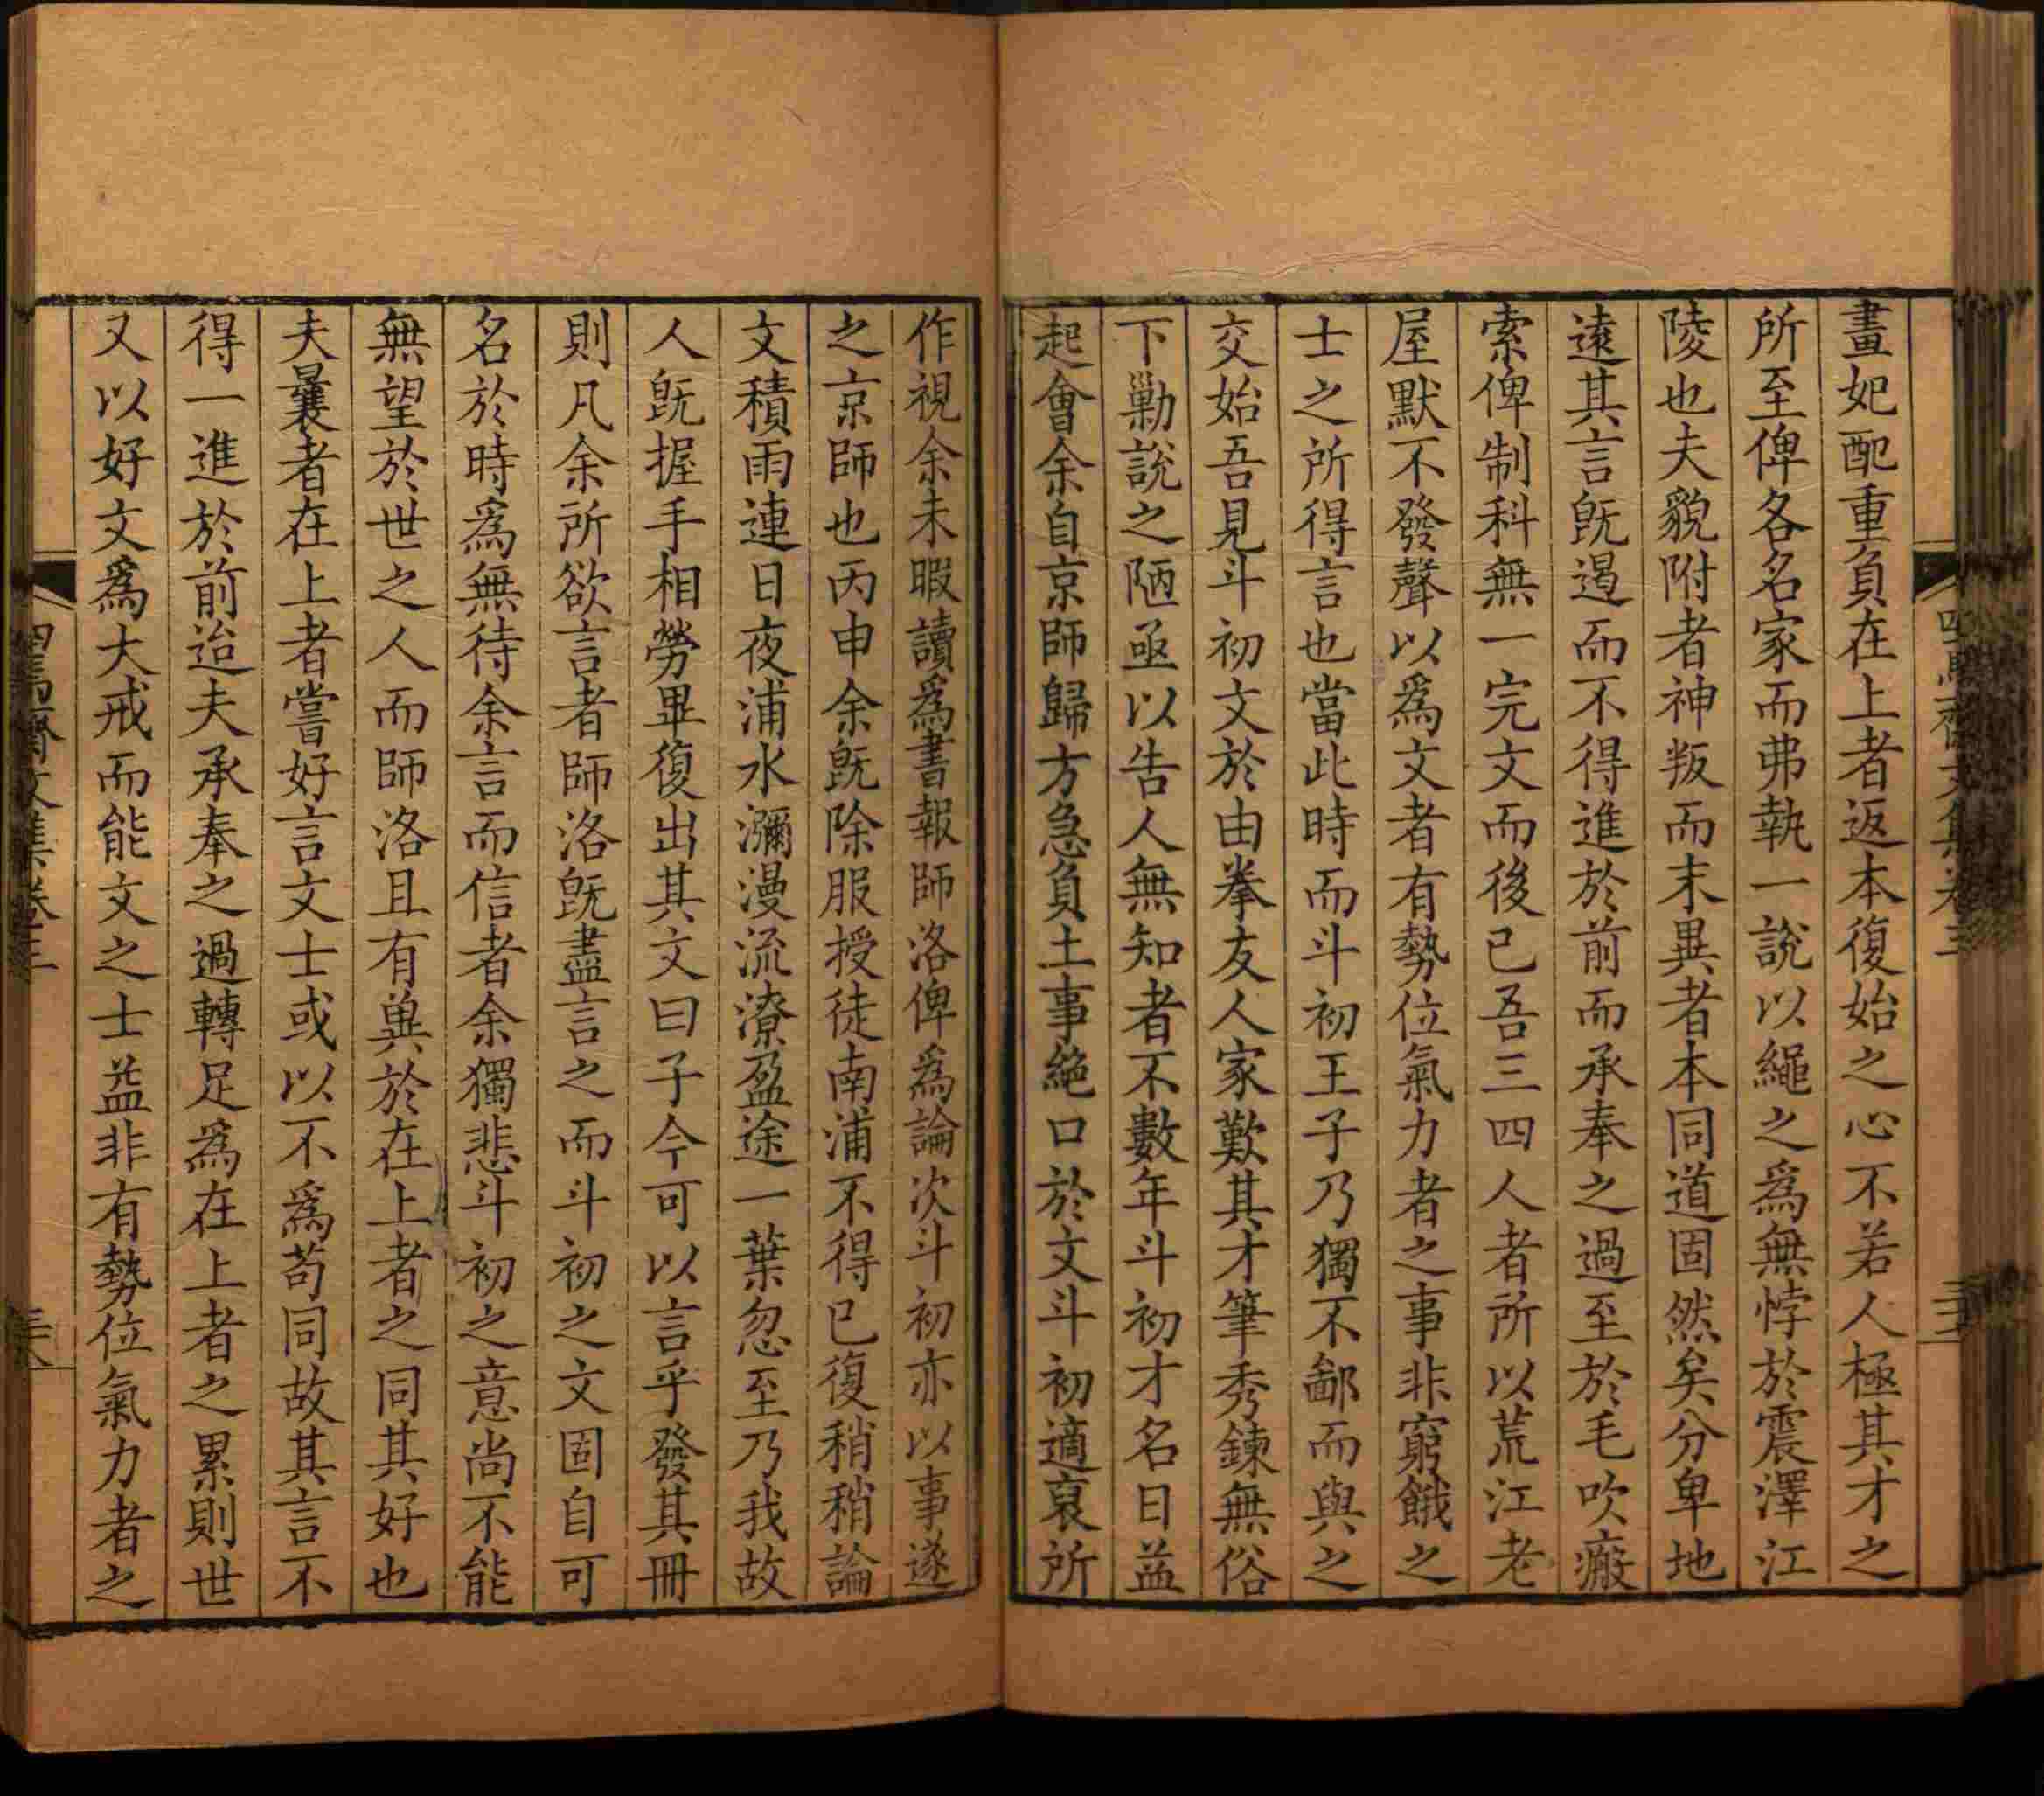 畫妃配重負在上者返本復始之心不若人極其才之
所至俾各名家而弗執一說以繩之爲無悖於震澤江
陵也夫貌附者神叛而末異者本同道固然矣分卑地
遠其言旣遏而不得進於前而承奉之過至於毛吹瘢
索俾制科無一完文而後已吾三四人者所以荒江老
屋默不發聲以爲文者有勢位氣力者之事非窮餓之
士之所得言也當此時而斗初王子乃獨不鄙而與之
交始吾見斗初文於由拳友人家歎其才筆秀鍊無俗
下勦說之陋亟以告人無知者不數年斗初才名日益
起會余自京師歸方急負土事絕口於文斗初適裒所
作視余未暇讀爲書報師洛俾爲論次斗初亦以事遂
之京師也丙申余旣除服授徒南浦不得已復稍稍論
文積雨連日夜浦水瀰漫流潦盈途一葉忽至乃我故
人旣握手相勞畢復出其文曰子今可以言乎發其冊
則凡余所欲言者師洛旣盡言之而斗初之文固自可
名於時爲無待余言而信者余獨悲斗初之意尚不能
無望於世之人而師洛且有兾於在上者之同其好也
夫曩者在上者嘗好言文士或以不爲苟同故其言不
得一進於前迨夫承奉之過轉足爲在上者之累則世
又以好文爲大戒而能文之士益非有勢位氣力者之
四焉齋文集卷三